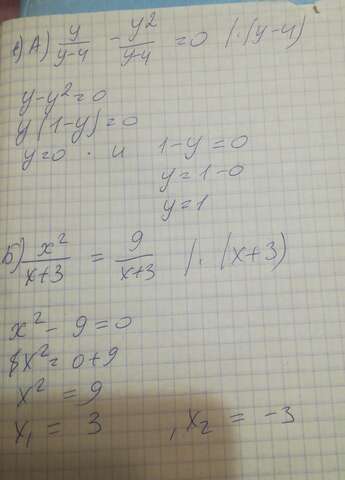 1) А) y/(y-4) - y²/(y-4) = 0 | · (y-4)
y-y²=0
y(1-y)=0
y=0 . и 1-y=0
y=1-0
y=1
Б) x²/(x+3) = 9/(x+3) | · (x+3)
x²-9=0
x²=0+9
x²=9
x₁=3 , x₂=-3